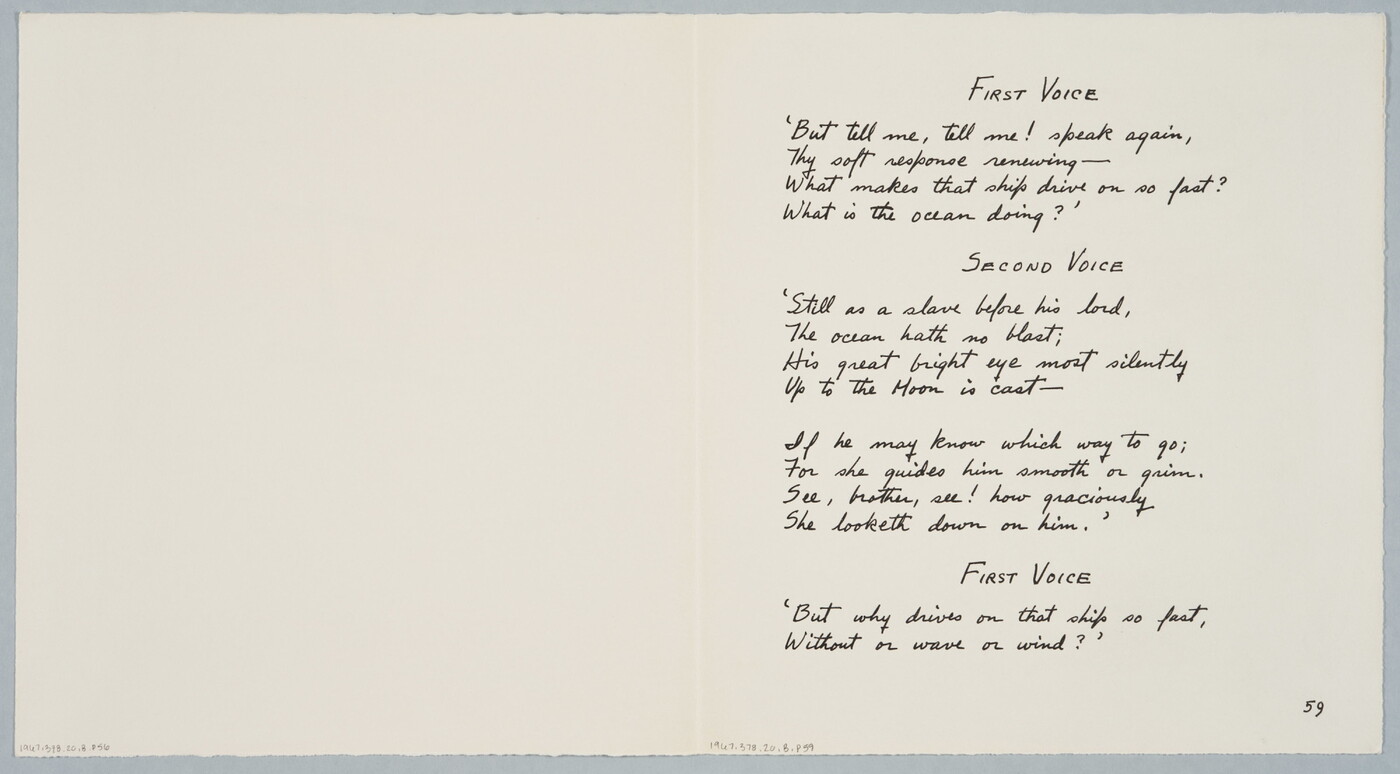 FIRST VOICE
'But tell me, tell me! speak again,
Thy soft response renewing—
What makes that ship drive on so fast?
What is the ocean doing?'
SECOND VOICE
'Still as a slave before his lord,
The ocean hath no blast;
His great bright eye most silently
Up to the Moon is cast—
If he may know which way to go;
For she guides him smooth or grim.
See, brother, see! how graciously
She looketh down on him.'
FIRST VOICE
'But why drives on that ship so fast,
Without or wave or wind?'
59
1967.378.20.8.P56
1967.378.20.8.P59